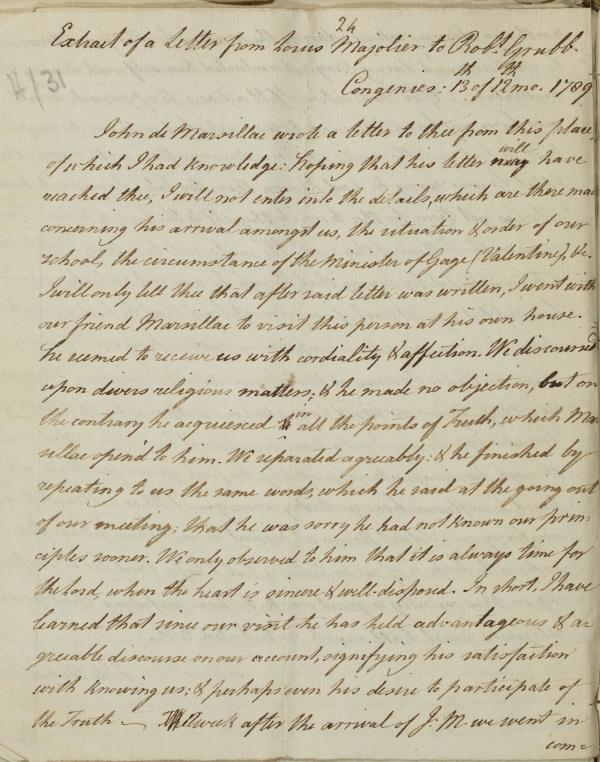 24
Extract of a Letter from Louis Majolier to Robt. Grubb.
4/31
Congenies: 13th of 12th mo. 1789
John de Marsillac wrote a letter to thee from this place,
of which I had knowledge: hoping that his letter will have
reached thee, I will not enter into the details, which are there ma
concerning his arrival amongst us, the situation & order of our
school, the circumstance of the Minister of Gage (Valentine), &c.
I will only tell thee that after said letter was written, I went with
our friend Marsillac to visit this person at his own house.
he seemed to receive us with cordiality & affection. We discoursed
upon divers religious matters; & he made no objection, but on
the contrary he acquiesced in all the points of Truth, which Mar
sillac open'd to him. We separated agreeably: & he finished by
repeating to us the same words, which he said at the going out
of our meeting; that he was sorry he had not known our prin=
ciples sooner. We only observed to him that it is always time for
the Lord, when the heart is sincere & well-disposed. In short, I have
learned that since our visit he has held advantageous & a=
greeable discourse on our account, signifying his satisfaction
with knowing us; & perhaps even his desire to participate of
the Truth — week after the arrival of J. M. we went in
com=